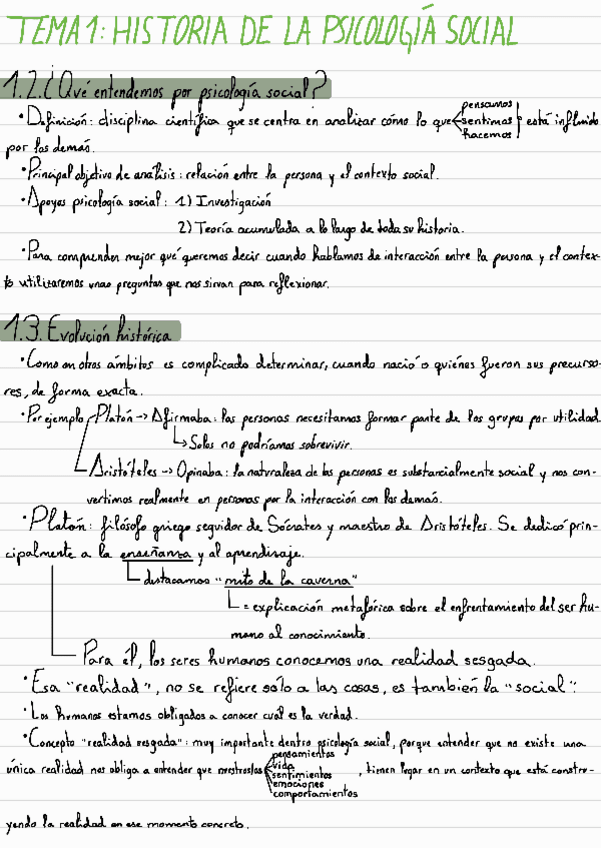 TEMA 1: HISTORIA DE LA PSICOLOGÍA SOCIAL
1.2. ¿Qué entendemos por psicología social?
• Definición: disciplina científica que se centra en analizar cómo lo que pensamos sentimos hacemos está influido
por los demás.
• Principal objetivo de análisis: relación entre la persona y el contexto social.
• Apoyos psicología social: 1) Investigación
2) Teoría acumulada a lo largo de toda su historia.
• Para comprender mejor qué queremos decir cuando hablamos de interacción entre la persona y el contex-
to utilizaremos unas preguntas que nos sirvan para reflexionar.
1.3. Evolución histórica
• Como en otros ámbitos es complicado determinar, cuando nació o quiénes fueron sus precurso-
res, de forma exacta.
• Por ejemplo Platón -> Afirmaba: las personas necesitamos formar parte de los grupos por utilidad.
Solos no podríamos sobrevivir.
Aristóteles -> Opinaba: la naturaleza de las personas es substancialmente social y nos con-
vertimos realmente en personas por la interacción con los demás.
• Platón: filósofo griego seguidor de Sócrates y maestro de Aristóteles. Se dedicó prin-
cipalmente a la enseñanza y al aprendizaje.
destacamos "mito de la caverna"
= explicación metafórica sobre el enfrentamiento del ser hu-
mano al conocimiento.
Para él, los seres humanos conocemos una realidad sesgada.
• Esa "realidad", no se refiere sólo a las cosas, es también la "social".
• Los humanos estamos obligados a conocer cuál es la verdad.
• Concepto "realidad sesgada": muy importante dentro psicología social, porque entender que no existe una
única realidad nos obliga a entender que nuestros/as pensamientos vida sentimientos emociones comportamientos, tienen lugar en un contexto que está constru-
yendo la realidad en ese momento concreto.